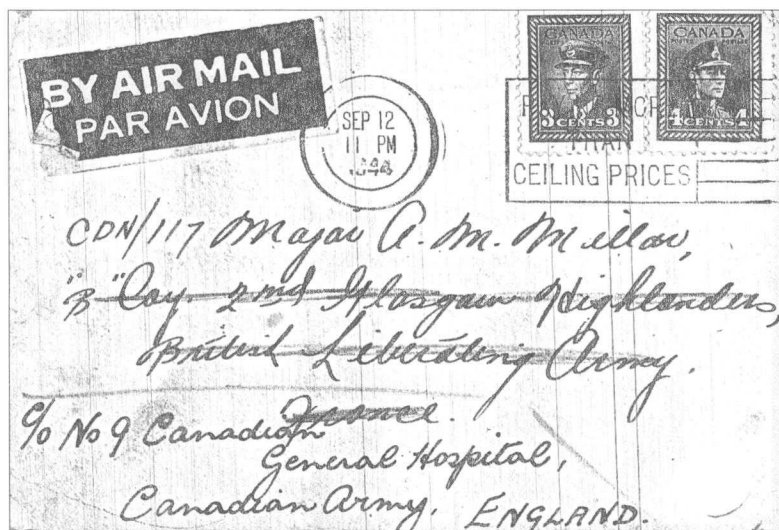 BY AIR MAIL
PAR AVION
SEP 12
11 PM
1944
CANADA
POSTES POSTAGE
3 CENTS 3
CANADA
POSTES POSTAGE
4 CENTS 4
THAN
CEILING PRICES
CDN/117 Major A. M. Millar,
"B" Coy. 2nd Glasgow Highlanders,
British Liberating Army.
France.
c/o No 9 Canadian
General Hospital,
Canadian Army, ENGLAND